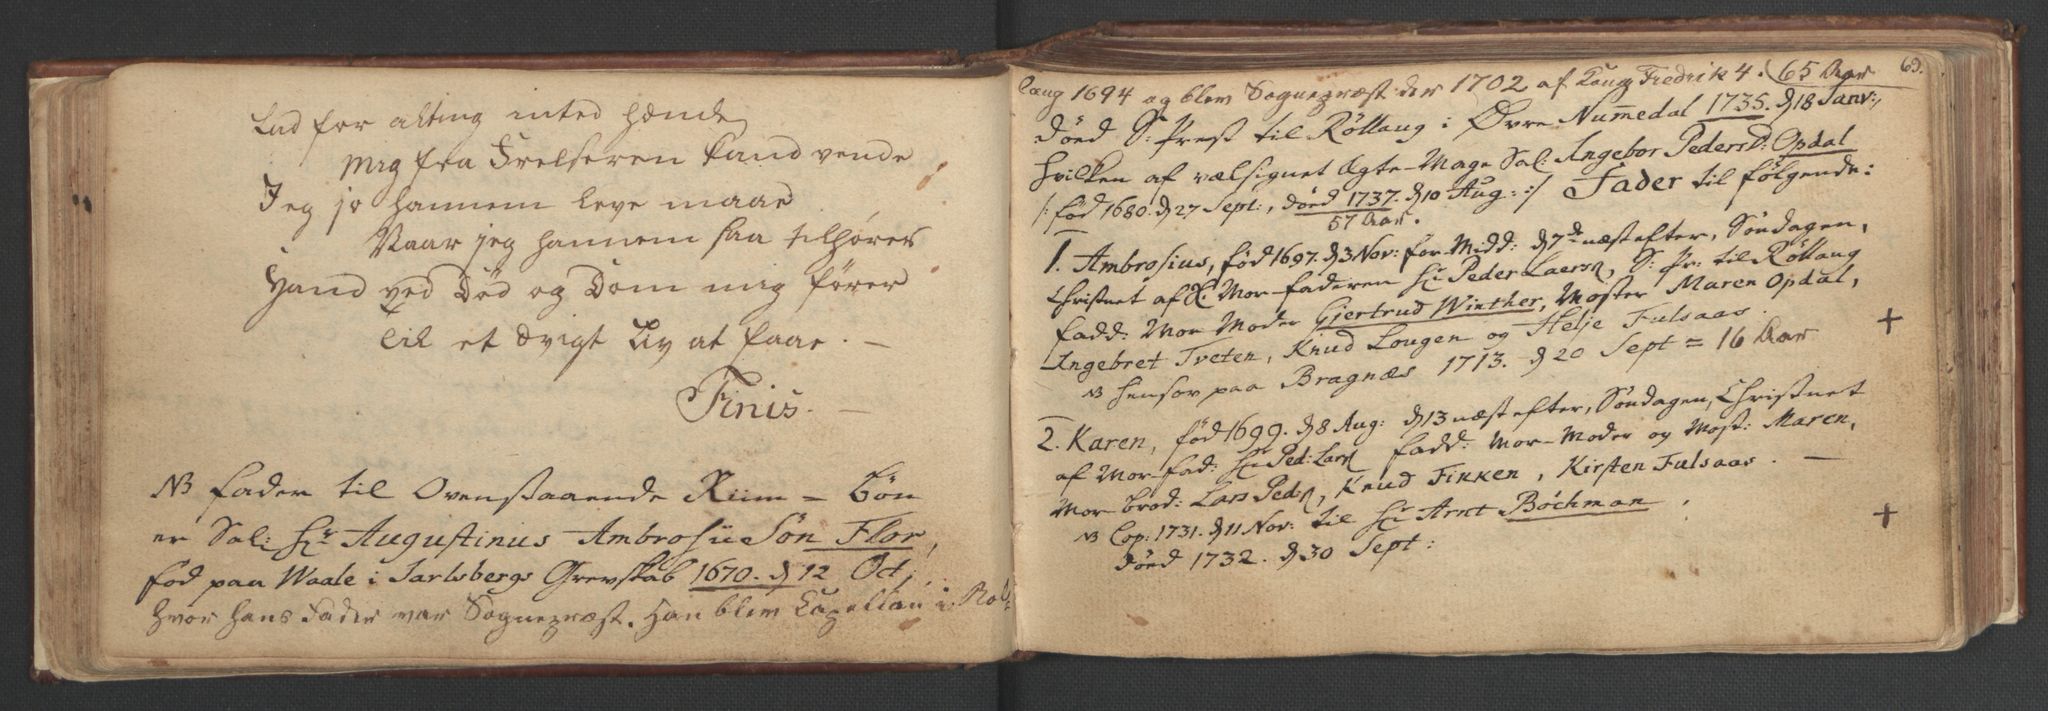 Lad for alting inted hænde
Mig fra Frelseren kand vende
Jeg jo hannem leve maae
Naar jeg hannem saa tilhører
Hand ved Død og Dom mig fører
Til et Evigt Liv at faae. —
Finis. —
NB Fader til Ovenstaaende Riim-Bøn
er Sal: Hr Augustinus Ambrosii Søn Flor,
fød paa Waale i Jarlsbergs Grevskab 1670. d 12 Oct,
hvor hans Fader var Sognepræst. Han blev Capellan i Rol-
69.
laug 1694 og blev Sognepræst der 1702 af Kong Fredrik 4. (65 Aar
Døed S: Prest til Røllaug i Øvre Nummedal 1735. d 18 Janv:,
hvilken af vælsignet Ægte-Mage Sal: Ingebor Pedersd: Opdal
/: fød 1680. d 27 Sept:, døed 1737. d 10 Aug: :/ Fader til følgende:
57 Aar.
1. Ambrosius, fød 1697. d 3 Nov: for-Midd: d 7de næst efter, Søndagen,
Christnet af Mor-faderen Hr Peder Laers, S: Pr: til Røllaug
fadd: Mor Moder Gjertrud Winther, Moster Maren Opdal,
Ingebret Tveten, Knud Lougen og Helje Fulsaas.
NB hensov paa Bragnæs 1713. d 20 Sept = 16 Aar
+
2. Karen, fød 1699. d 8 Aug: d 13 næst efter, Søndagen, Christnet
af Mor-fad: Hr Ped: Lars fadd: Mor-Moder og Most: Maren,
Mor brod: Lars Peds, Knud Finken, Kirsten Fulsaas. —
NB Cop: 1731. d 11 Nov: til Hr Arnt Böchman.
+
Døed 1732. d 30 Sept: